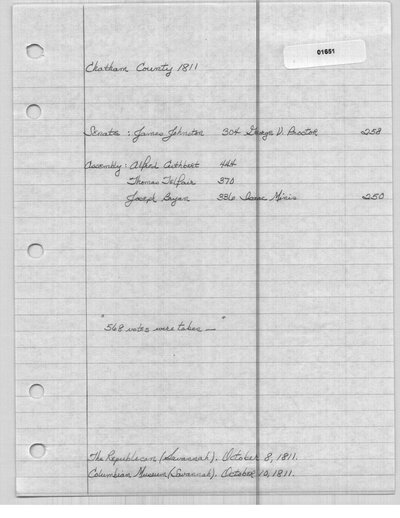 01651
Chatham County 1811
Senate : James Johnston 304 George V. Proctor 258
Assembly : Alfred Cuthbert 444
Thomas Telfair 370
Joseph Bryan 336 Isaac Minis 250
"568 votes were taken —"
The Republican (Savannah). October 8, 1811.
Columbian Museum (Savannah). October 10, 1811.